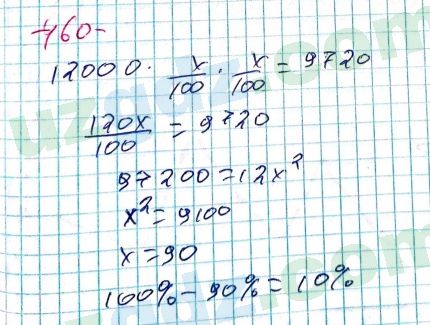 460-
12000 · x/100 · x/100 = 9720
120x/100 = 9720
97200 = 12x²
x² = 9100
x = 90
100% - 90% = 10%
uzgdz.com